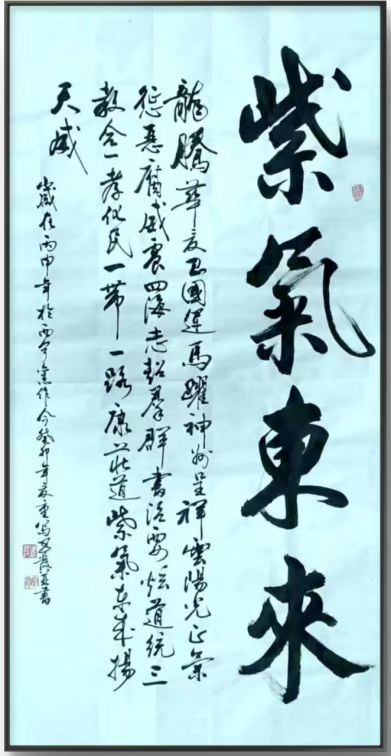 紫氣東來
龍騰華夏國運馬躍神州呈祥雲陽光正氣
惩惡腐威震四海志超羣群書治要炫道統三
教合一孝化民一帶一路康莊道紫氣東來揚
天威
歲在丙申年於西寧作今癸卯年夏重寫書